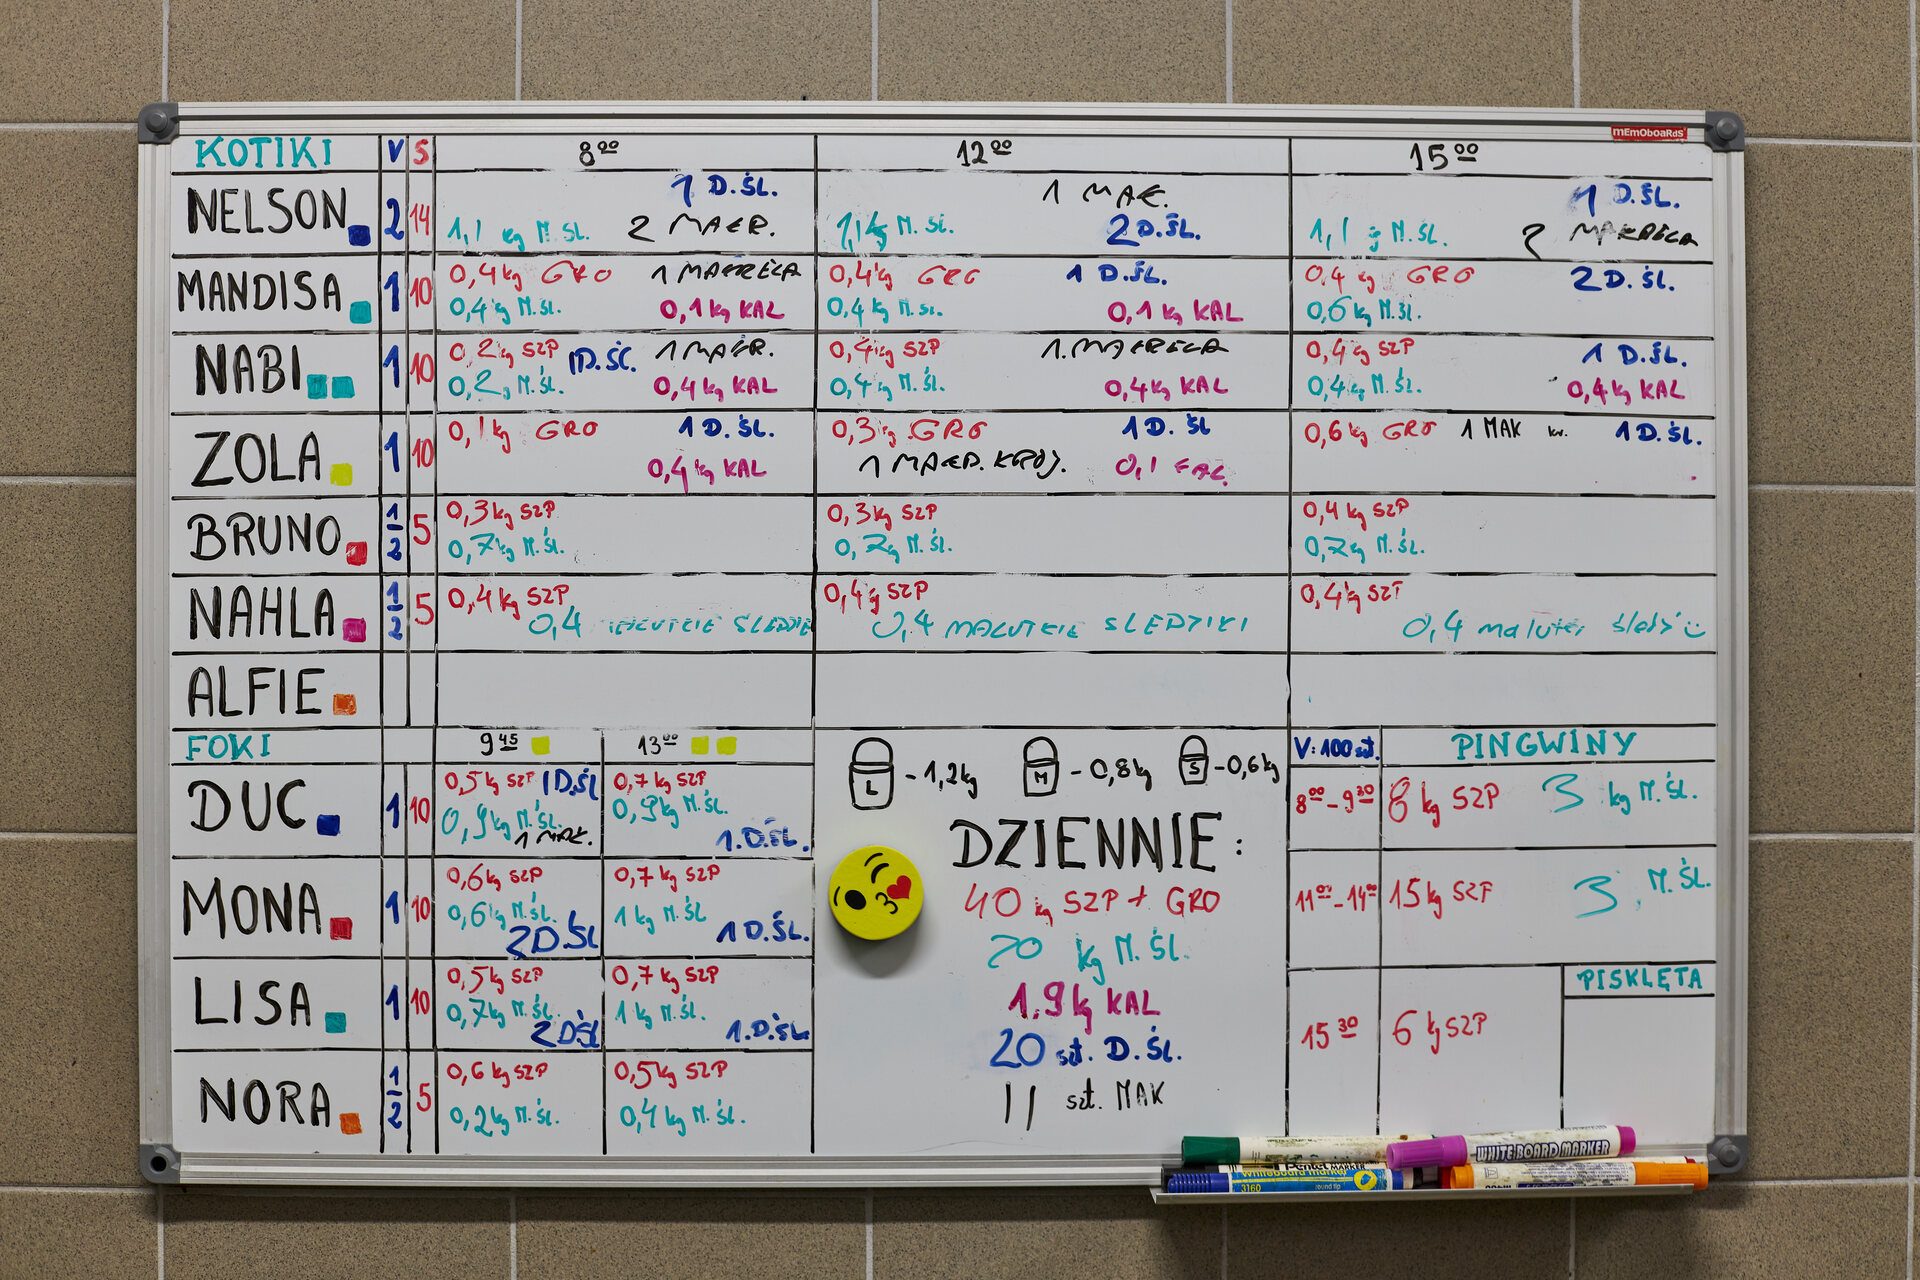 mEmOboaRds
KOTIKI V S 8 00 12 00 15 00
NELSON 2 14
1 D.ŚL.
1,1 kg M.ŚL. 2 MAKR.
1 MAK.
M.ŚL. 2 D.ŚL.
1 D.ŚL.
1,1 kg M.ŚL. 2 MAKRELA
MANDISA 1 10
0,4 kg GRO 1 MAKRELA
0,4 kg M.ŚL. 0,1 kg KAL
0,4 kg GRO 1 D.ŚL.
0,4 kg M.ŚL. 0,1 kg KAL
0,4 kg GRO 2 D.ŚL.
0,6 kg M.ŚL.
NABI 1 10
0,2 kg SZP 1D.ŚL. 1 MAKR.
0,2 kg M.ŚL. 0,4 kg KAL
0,4 kg SZP 1.MAKRELA
0,4 kg M.ŚL. 0,4 kg KAL
0,4 kg SZP 1 D.ŚL.
0,4 kg M.ŚL. 0,4 kg KAL
ZOLA 1 10
0,1 kg GRO 1 D.ŚL.
0,4 kg KAL
0,3 kg GRO 1 D.ŚL
1 KROJ. 0,1 KAL
0,6 kg GRO 1 MAK kr. 1 D.ŚL.
BRUNO 1/2 5
0,3 kg SZP
0,7 kg M.ŚL.
0,3 kg SZP
0,7 kg M.ŚL.
0,4 kg SZP
0,7 kg M.ŚL.
NAHLA 1/2 5
0,4 kg SZP
0,4 MALUTKIE ŚLEDZIE
0,4 kg SZP
0,4 MALUTKIE SLEDZIKI
0,4 kg SZP
0,4 maluteń śledź
ALFIE
FOKI 9 45 13 00
DUC 1 10
0,5 kg SZP 1D.ŚL
0,9 kg M.ŚL.
1 MAK.
0,7 kg SZP
0,9 kg M.ŚL.
1.D.ŚL.
MONA 1 10
0,6 kg SZP
0,6 kg M.ŚL.
2D.ŚL
0,7 kg SZP
1 kg M.ŚL
1D.ŚL.
LISA 1 10
0,5 kg SZP
0,7 kg M.ŚL.
2D.ŚL
0,7 kg SZP
1 kg M.ŚL.
1.D.ŚL
NORA 1/2 5
0,6 kg SZP
0,2 kg M.ŚL.
0,5 kg SZP
0,4 kg M.ŚL.
L - 1,2 kg M - 0,8 kg S - 0,6 kg
DZIENNIE:
40 kg SZP + GRO
20 kg M.ŚL.
1,9 kg KAL
20 szt. D.ŚL.
11 szt. MAK
V: 100 szt. PINGWINY
8 00 - 9 30 8 kg SZP 3 kg M.ŚL.
11 00 - 14 00 15 kg SZP 3 M.ŚL.
PISKLĘTA
15 30 6 kg SZP
WHITE BOARD MARKER
Pentel MARKER
Whiteboard marker
3160 round tip